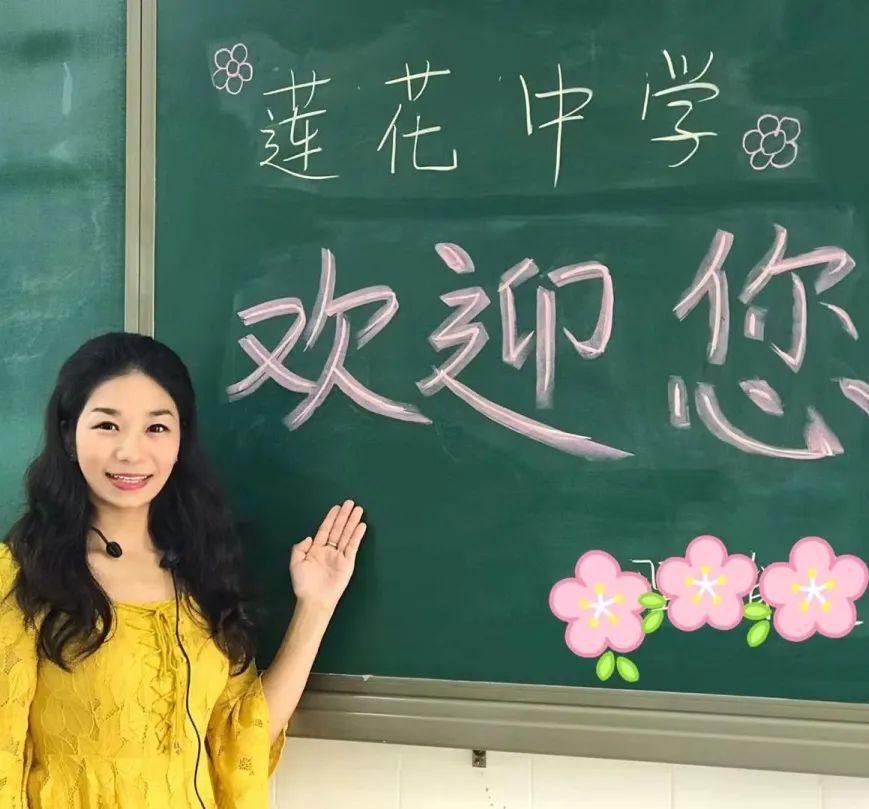 莲花中学
欢迎您